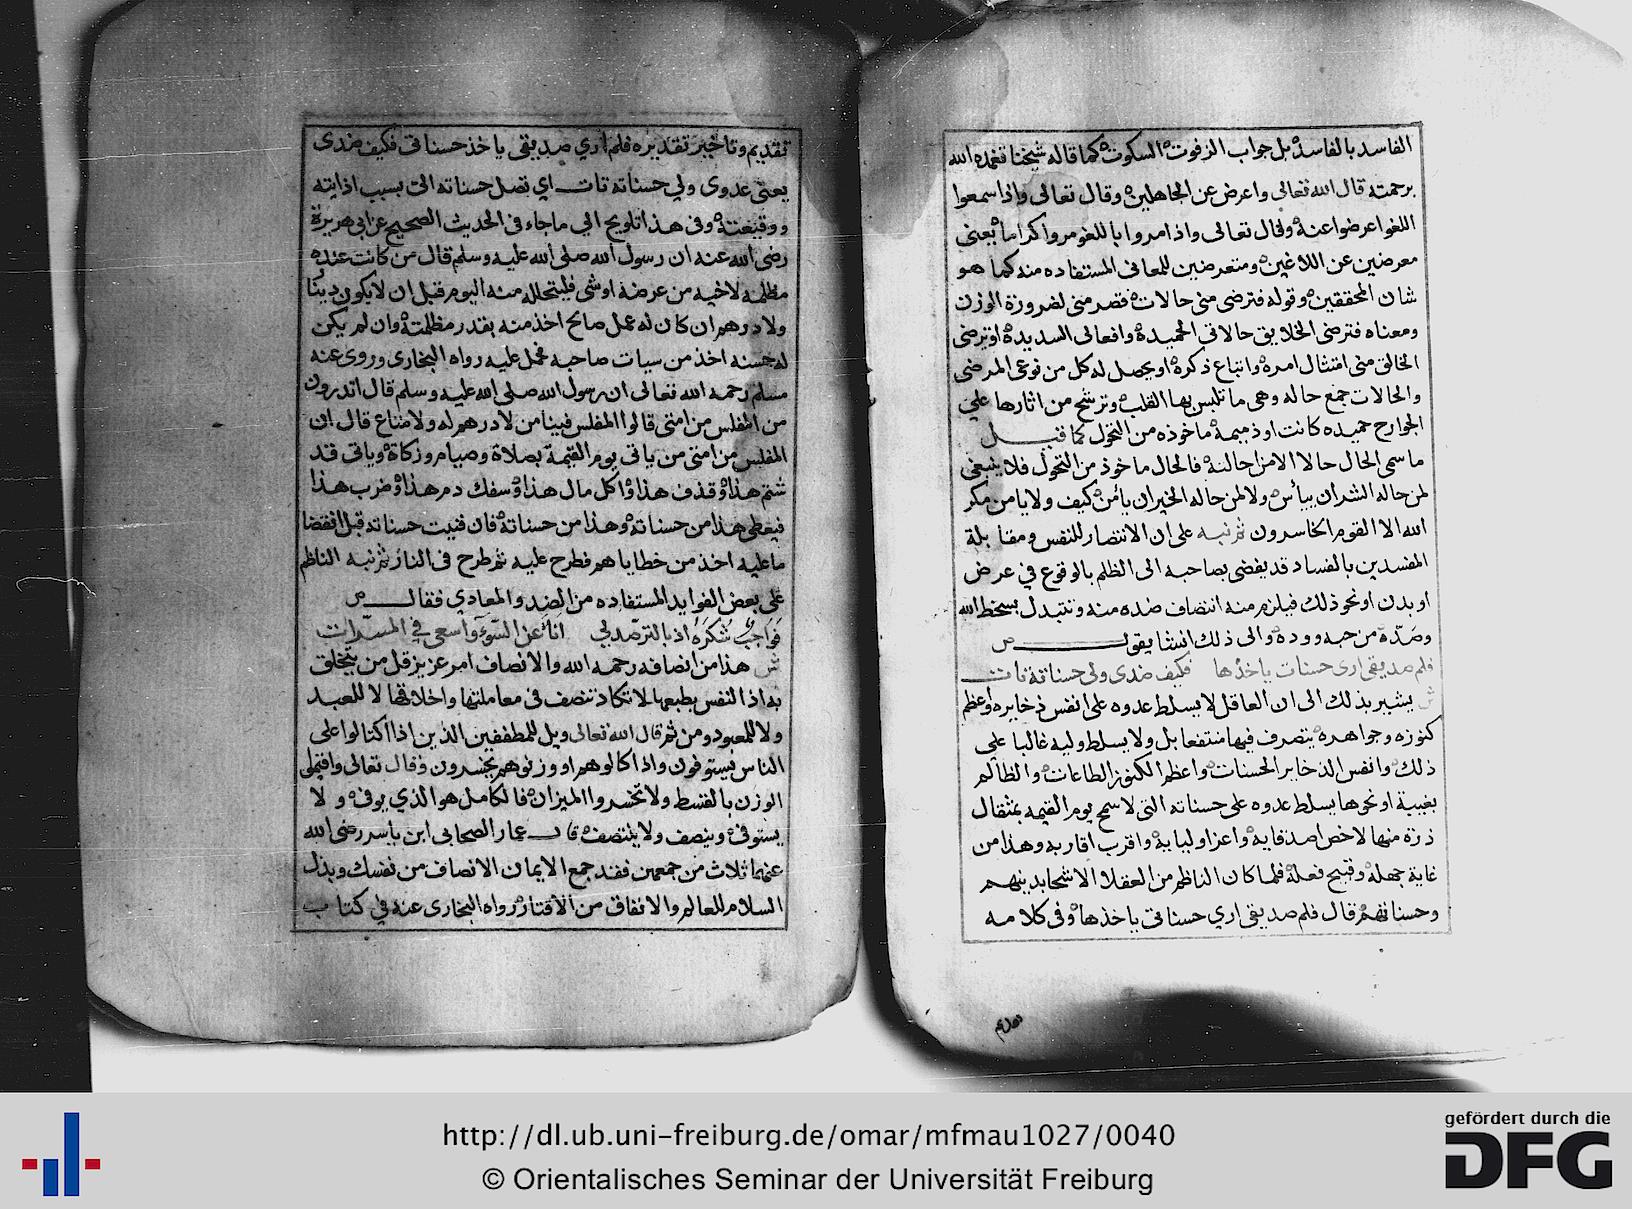 الفاسد بالفاسد بل جواب الزفوت السكوت كما قاله شيخنا تغمده الله
برحمته قال الله تعالى واعرض عن الجاهلين وقال تعالى واذا سمعوا
اللغو اعرضوا عنه وقال تعالى واذا مروا باللغو مروا كراما يعنى
معرضين عن اللاغين ومتعرضين للمعانى المستفاده منه كما هو
شان المحققين وقوله فترضى منى حالات فقصر منى لضرورة الوزن
ومعناه فترضى الخلايق حالاتى الحميدة وافعالى السديدة او ترضى
الخالق منى امتثال امره واتباع ذكره او يحصل له كل من نوعى المرضى
والحالات جمع حاله وهى ما تلبس بها القلب وترشح من اثارها على
الجوارح حميده كانت او ذميمة ماخوذه من التحول كما قيل
ما سمى الحال حالا الا من حالته فالحال ماخوذ من التحول فلا ينبغى
لمن حاله الشر ان ييأس ولا لمن حاله الخير ان يأمن كيف ولا يامن مكر
الله الا القوم الخاسرون ثم نبه على ان الانتصار للنفس ومقابلة
المفسدين بالفساد قد يفضى بصاحبه الى الظلم بالوقوع في عرض
او بدن او نحو ذلك فيلزم منه انتصاف ضده منه وتتبدل بسخط الله
وضده من حبه ووده والى ذلك انشا يقول ص
فلم صديقى ارى حسنات ياخذها فكيف ضدى ولى حسناتة تات
ش يشير بذلك الى ان العاقل لا يسلط عدوه على انفس ذخايره واعظم
كنوزه وجواهره يتصرف فيها منتفعا بل ولا يسلط وليه غالبا على
ذلك وانفس الذخاير الحسنات واعظم الكنوز الطاعات والظالم
بغيبة او نحوها يسلط عدوه على حسناته التى لا سمح يوم القيمه بمثقال
ذرة منها لاخص اصدقايه واعز اوليايه واقرب اقاربه وهذا من
غاية جهله وقبيح فعله فلما كان الناظم من العقلا الاشحا بدينهم
وحسناتهم قال فلم صديقى ارى حسناتى ياخذها وفى كلامه
تقديم وتاخير تقديره فلم ارى صديقى ياخذ حسناتى فكيف ضدى
يعنى عدوى ولى حسناته تات اي تصل حسناته الى بسبب اذايته
ووقيعته وفى هذا تلويح الي ما جاء فى الحديث الصحيح عن ابى هريرة
رضى الله عنه ان رسول الله صلى الله عليه وسلم قال من كانت عنده
مظلمه لاخيه من عرضه او شى فليتحلله منه اليوم قبل ان لا يكون دينار
ولا درهم ان كان له عمل صالح اخذ منه بقدر مظلمته وان لم يكن
له حسنه اخذ من سيات صاحبه فحمل عليه رواه البخارى وروى عنه
مسلم رحمه الله تعالى ان رسول الله صلى الله عليه وسلم قال اتدرون
من المفلس من امتى قالوا المفلس فينا من لا درهم له ولا متاع قال ان
المفلس من امتى من ياتى يوم القيمة بصلاة وصيام وزكاة وياتى قد
شتم هذا وقذف هذا واكل مال هذا وسفك دم هذا وضرب هذا
فيعطى هذا من حسناته وهذا من حسناته فان فنيت حسناته قبل انقضا
ما عليه اخذ من خطاياهم فطرح عليه ثم طرح فى النار ثم نبه الناظم
على بعض الفوايد المستفاده من الضد والمعادي فقال ص
فواجب شكره اذ بالترصد لى انأ عن السوء واسعى في المسرات
ش هذا من انصافه رحمه الله والانصاف امر عزيز قل من يتخلق
به اذ النفس بطبعها لا تكاد تنصف فى معاملتها واخلاقها لا للعبد
ولا للمعبود ومن ثم قال الله تعالى ويل للمطففين الذين اذا اكتالوا على
الناس يستوفون واذا كالوهم او وزنوهم يخسرون وقال تعالى واقيموا
الوزن بالقسط ولا تخسروا الميزان فالكامل هو الذي يوفى ولا
يستوفى وينصف ولا ينتصف قال عمار الصحابى ابن ياسر رضى الله
عنهما ثلاث من جمعهن فقد جمع الايمان الانصاف من نفسك وبذل
السلام للعالم والانفاق من الاقتار رواه البخارى عنه في كتاب
http://dl.ub.uni-freiburg.de/omar/mfmau1027/0040
© Orientalisches Seminar der Universität Freiburg
gefördert durch die
DFG